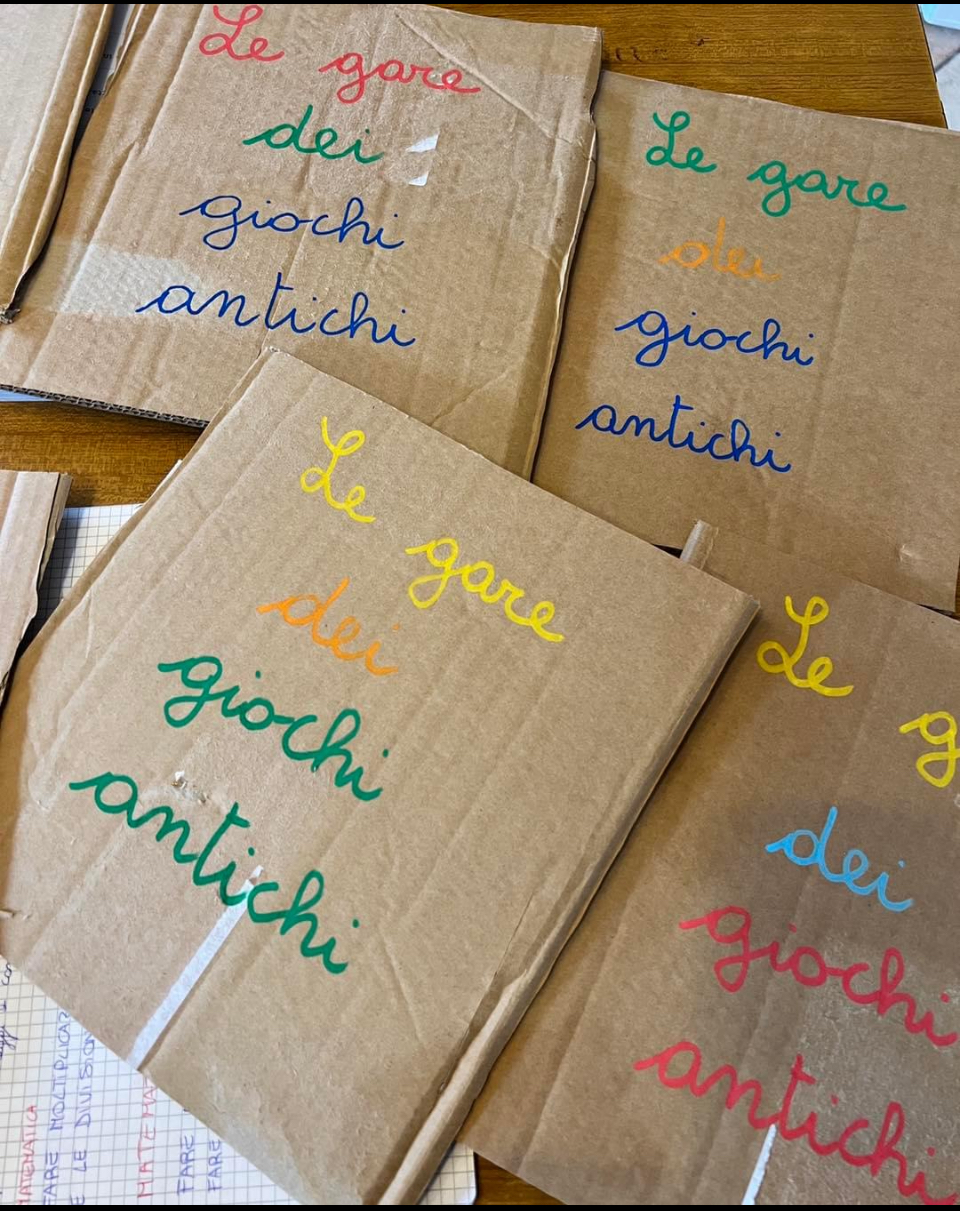 Le gare
dei
giochi
antichi
Le gare
dei
giochi
antichi
Le gare
dei
giochi
antichi
Le g
dei
giochi
antichi
MATEMATICA
FARE MOLTIPLICAZ
E LE DIVISION
MATEMA
FARE
FARE